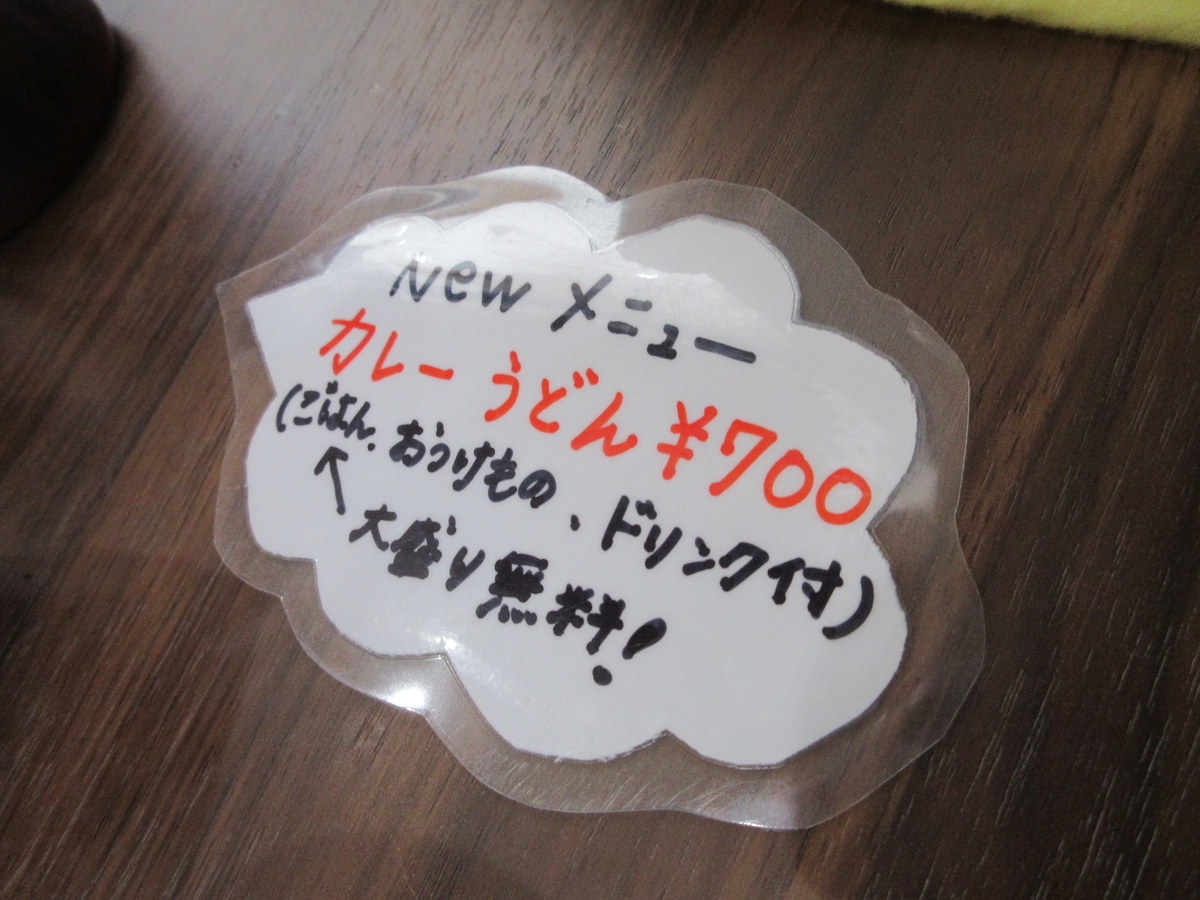 New メニュー
カレーうどん ¥700
(ごはん、おつけもの、ドリンク付)
↑大盛り無料!